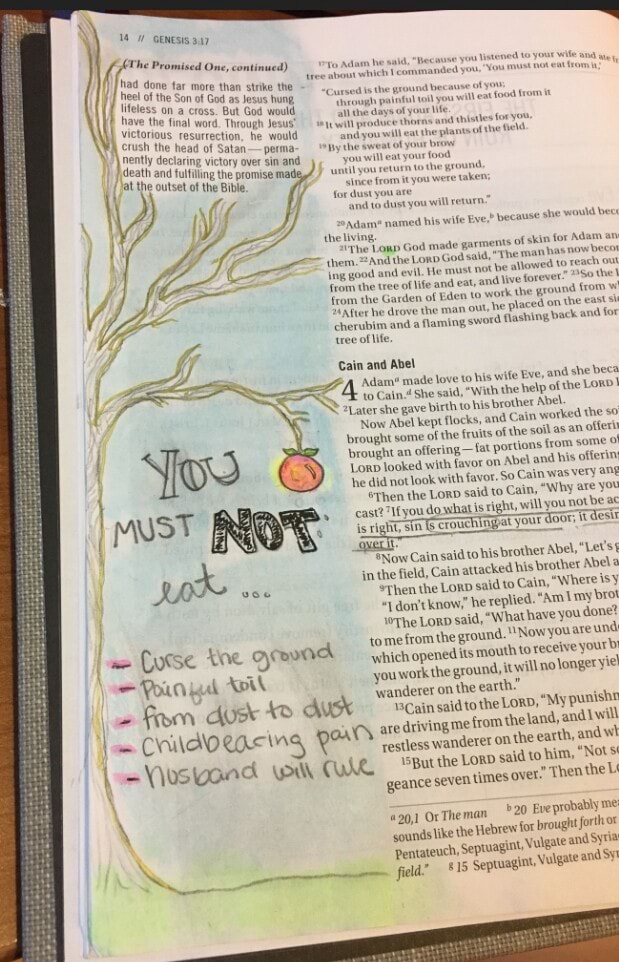 14 // GENESIS 3:17
(The Promised One, continued)
had done far more than strike the
heel of the Son of God as Jesus hung
lifeless on a cross. But God would
have the final word. Through Jesus'
victorious resurrection, he would
crush the head of Satan — perma-
nently declaring victory over sin and
death and fulfilling the promise made
at the outset of the Bible.
YOU
MUST NOT
eat ...
- Curse the ground
- Painful toil
- from dust to dust
- Childbearing pain
- husband will rule
17To Adam he said, "Because you listened to your wife and ate
tree about which I commanded you, 'You must not eat from it,'
"Cursed is the ground because of you;
through painful toil you will eat food from it
all the days of your life.
18It will produce thorns and thistles for you,
and you will eat the plants of the field.
19By the sweat of your brow
you will eat your food
until you return to the ground,
since from it you were taken;
for dust you are
and to dust you will return."
20Adama named his wife Eve,b because she would
the living.
21The LORD God made garments of skin for Adam
them. 22And the LORD God said, "The man has now
ing good and evil. He must not be allowed to reach out
from the tree of life and eat, and live forever." 23So the
from the Garden of Eden to work the ground from
24After he drove the man out, he placed on the east
cherubim and a flaming sword flashing back and
tree of life.
Cain and Abel
4 Adama made love to his wife Eve, and she
to Cain.d She said, "With the help of the LORD
2Later she gave birth to his brother Abel.
Now Abel kept flocks, and Cain worked the
brought some of the fruits of the soil as an
brought an offering — fat portions from some
LORD looked with favor on Abel and his
he did not look with favor. So Cain was very
6Then the LORD said to Cain, "Why are you
cast? 7If you do what is right, will you not be
is right, sin is crouching at your door; it
over it."
8Now Cain said to his brother Abel, "Let's
in the field, Cain attacked his brother Abel
9Then the LORD said to Cain, "Where is
"I don't know," he replied. "Am I my
10The LORD said, "What have you done?
to me from the ground. 11Now you are
which opened its mouth to receive your
you work the ground, it will no longer
wanderer on the earth."
13Cain said to the LORD, "My
are driving me from the land, and I will
restless wanderer on the earth, and
15But the LORD said to him, "Not
geance seven times over." Then the
a 20,1 Or The man b 20 Eve probably
sounds like the Hebrew for brought forth or
Pentateuch, Septuagint, Vulgate and
field." g 15 Septuagint, Vulgate and